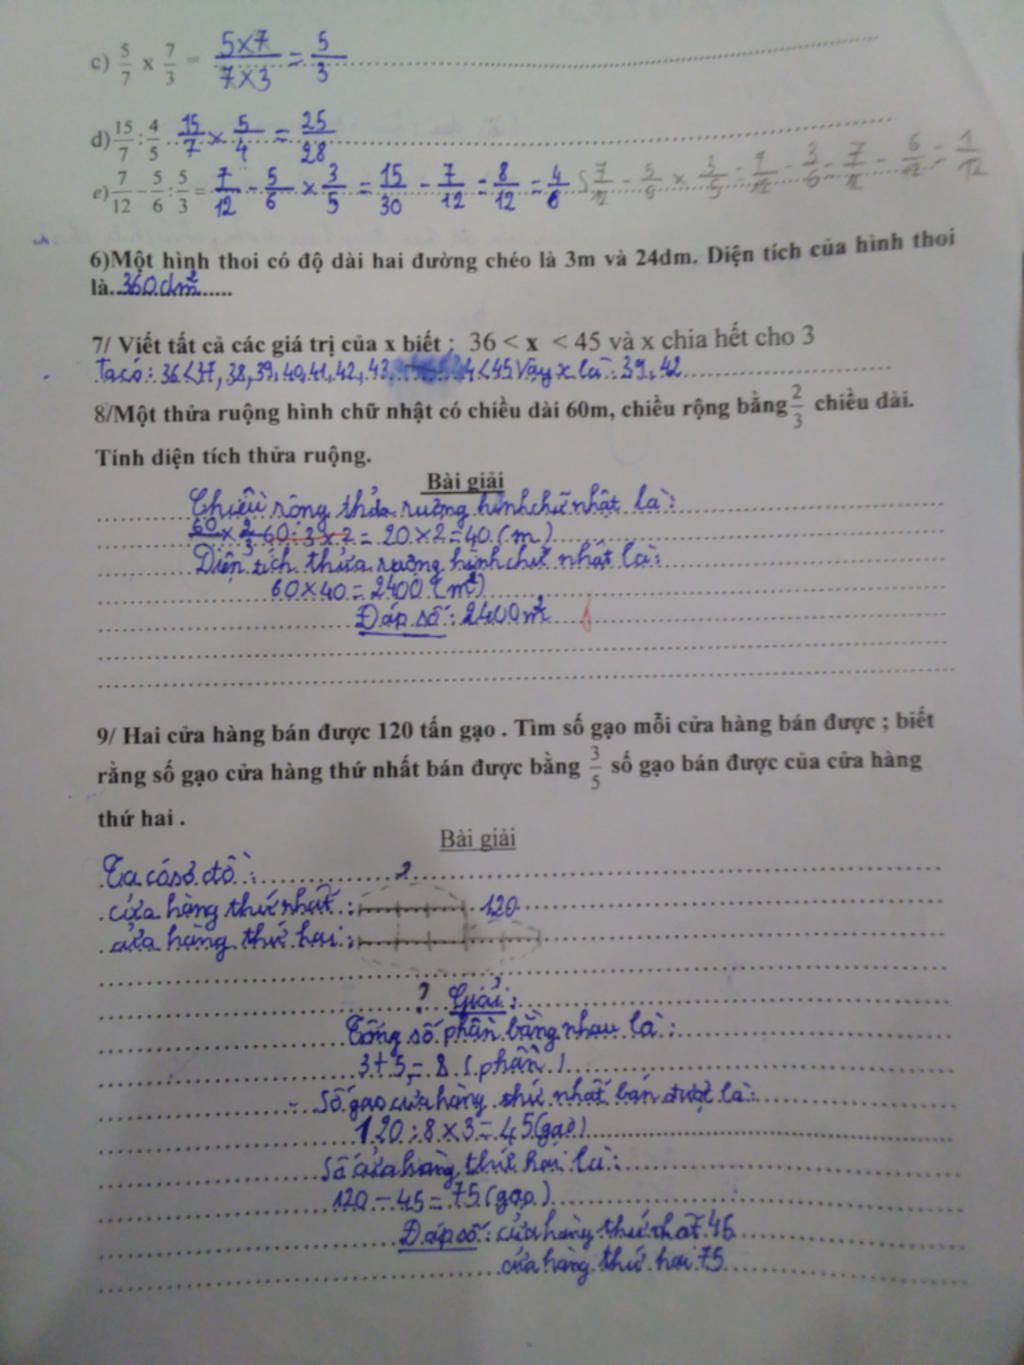 c) 5/7 x 7/3 = 5x7/7x3 = 5/3
d) 15/7 : 4/5 15/7 x 5/4 = 25/28
e) 7/12 - 5/6 : 5/3 = 7/12 - 5/6 x 3/5 = 15/30 - 7/12 = 8/12 = 4/6 7/12 - 5/6 x 3/5 = 7/12 - 3/6 = 7/12 - 6/12 = 1/12
6)Một hình thoi có độ dài hai đường chéo là 3m và 24dm. Diện tích của hình thoi
là..360dm²......
7/ Viết tất cả các giá trị của x biết : 36 < x < 45 và x chia hết cho 3
Ta có : 36<37, 38, 39, 40, 41, 42, 43, 4<45 Vậy x là : 39, 42
8/Một thửa ruộng hình chữ nhật có chiều dài 60m, chiều rộng bằng 2/3 chiều dài.
Tính diện tích thửa ruộng.
Bài giải
Chiều rộng thửa ruộng hình chữ nhật là :
60 x 2/3 60 : 3 x 2 = 20 x 2 = 40 (m)
Diện tích thửa ruộng hình chữ nhật là :
60 x 40 = 2400 (m²)
Đáp số : 2400m²
9/ Hai cửa hàng bán được 120 tấn gạo . Tìm số gạo mỗi cửa hàng bán được ; biết
rằng số gạo cửa hàng thứ nhất bán được bằng 3/5 số gạo bán được của cửa hàng
thứ hai .
Bài giải
Ta có sơ đồ : ?
cửa hàng thứ nhất : 120
cửa hàng thứ hai :
? Giải :
Tổng số phần bằng nhau là :
3 + 5 = 8 (phần)
Số gạo cửa hàng thứ nhất bán được là :
120 : 8 x 3 = 45 (gạo)
Số cửa hàng thứ hai là :
120 - 45 = 75 (gạo)
Đáp số : cửa hàng thứ nhất 45
cửa hàng thứ hai 75